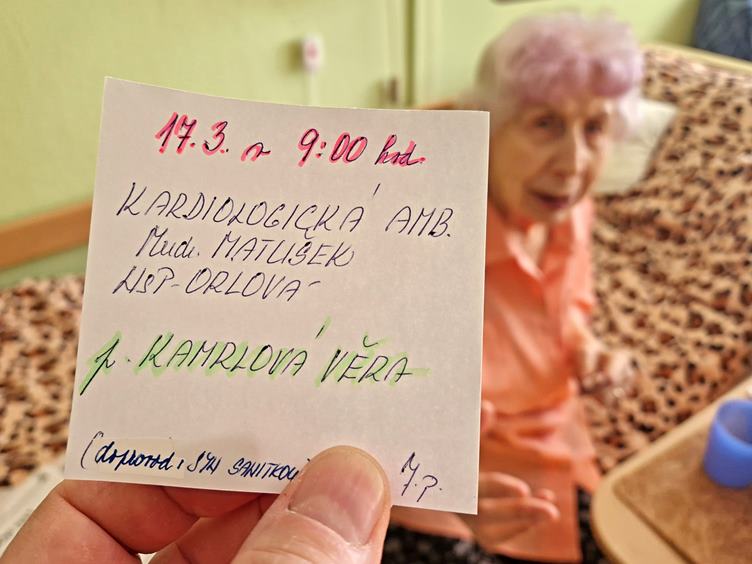 17.3. v 9:00 hod.
KARDIOLOGICKÁ AMB.
Mudr. MATUŠEK
NsP-ORLOVÁ
p. KAMRLOVÁ VĚRA
(doprovod, SYN SANITKOU
J.P.